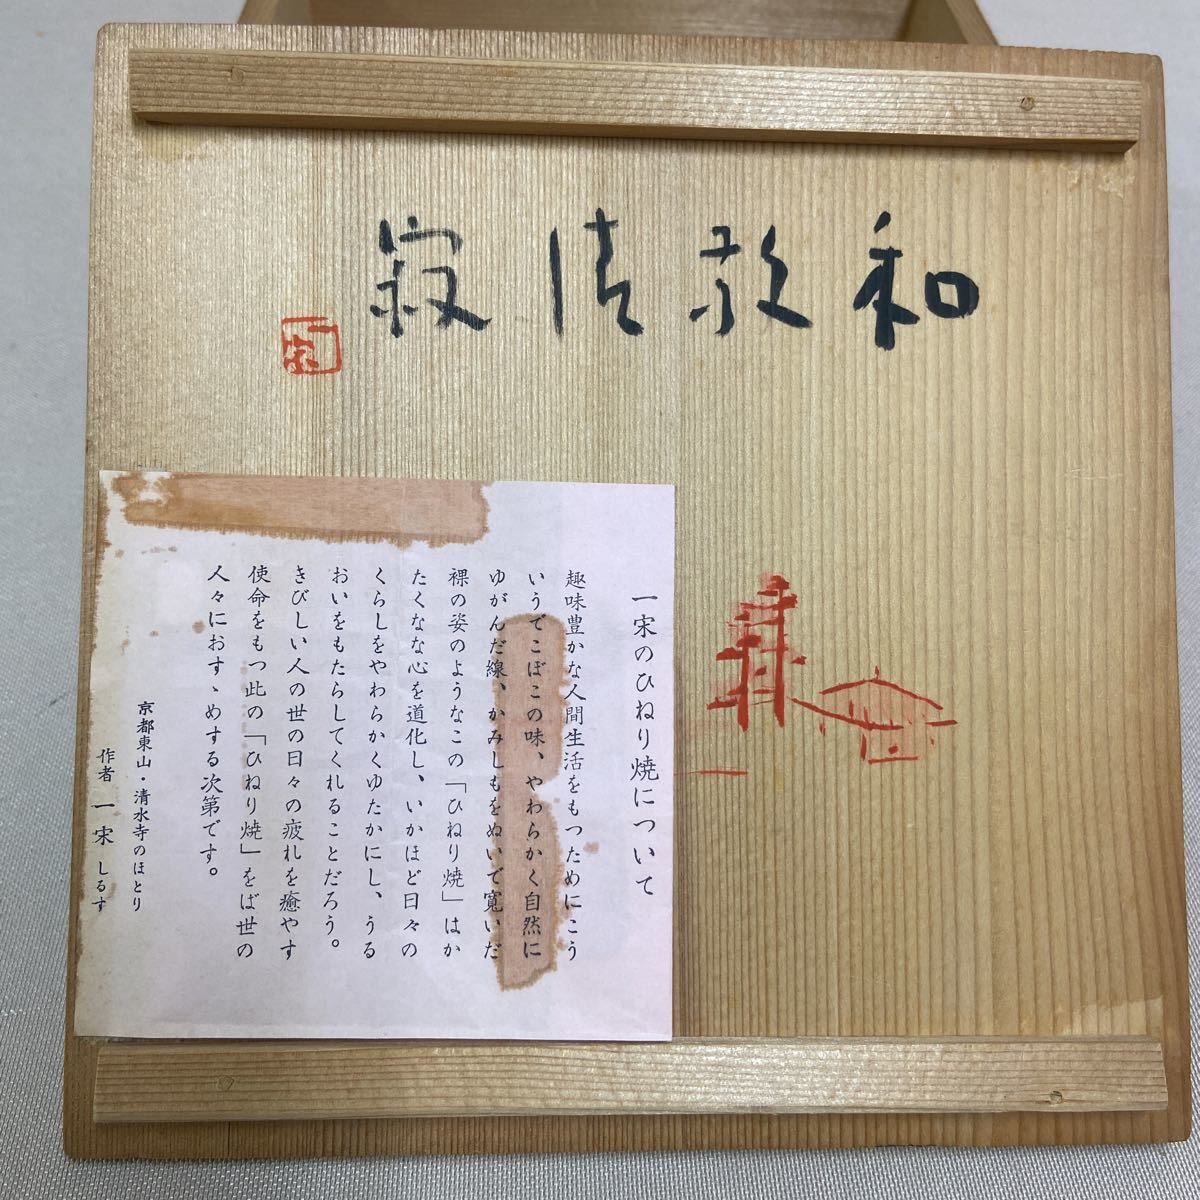 和敬清寂
一宋
一宋のひねり焼について
趣味豊かな人間生活をもつためにこう
いうでこぼこの味、やわらかく自然に
ゆがんだ線、かみしもをぬいで寛いだ
裸の姿のようなこの「ひねり焼」はか
たくなな心を道化し、いかほど日々の
くらしをやわらかくゆたかにし、うる
おいをもたらしてくれることだろう。
きびしい人の世の日々の疲れを癒やす
使命をもつ此の「ひねり焼」をば世の
人々におすゝめする次第です。
京都東山・清水寺のほとり
作者 一宋 しるす